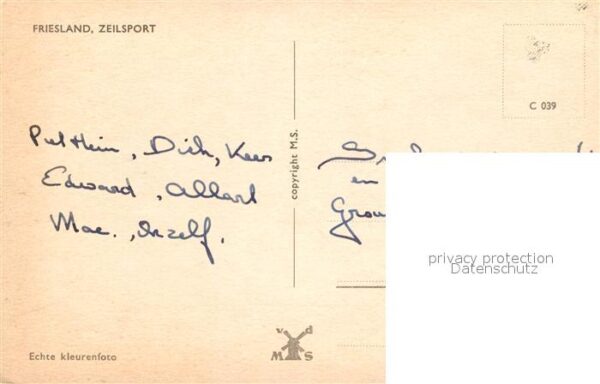 FRIESLAND, ZEILSPORT
C 039
Piet Hein, Dick, Kees
Edward, Allart
Mac.
en
Grou
copyright M.S.
privacy protection
Datenschutz
v d
M S
Echte kleurenfoto